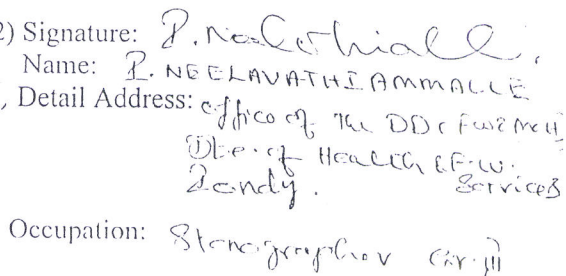 2) Signature: P. Neelavathiall.
Name: P. NEELAVATHI AMMALLE
, Detail Address: Office of The DD (FW & MCH)
Dte. of Health & F.W. Services
Pondy.
Occupation: Stenographer Gr. III